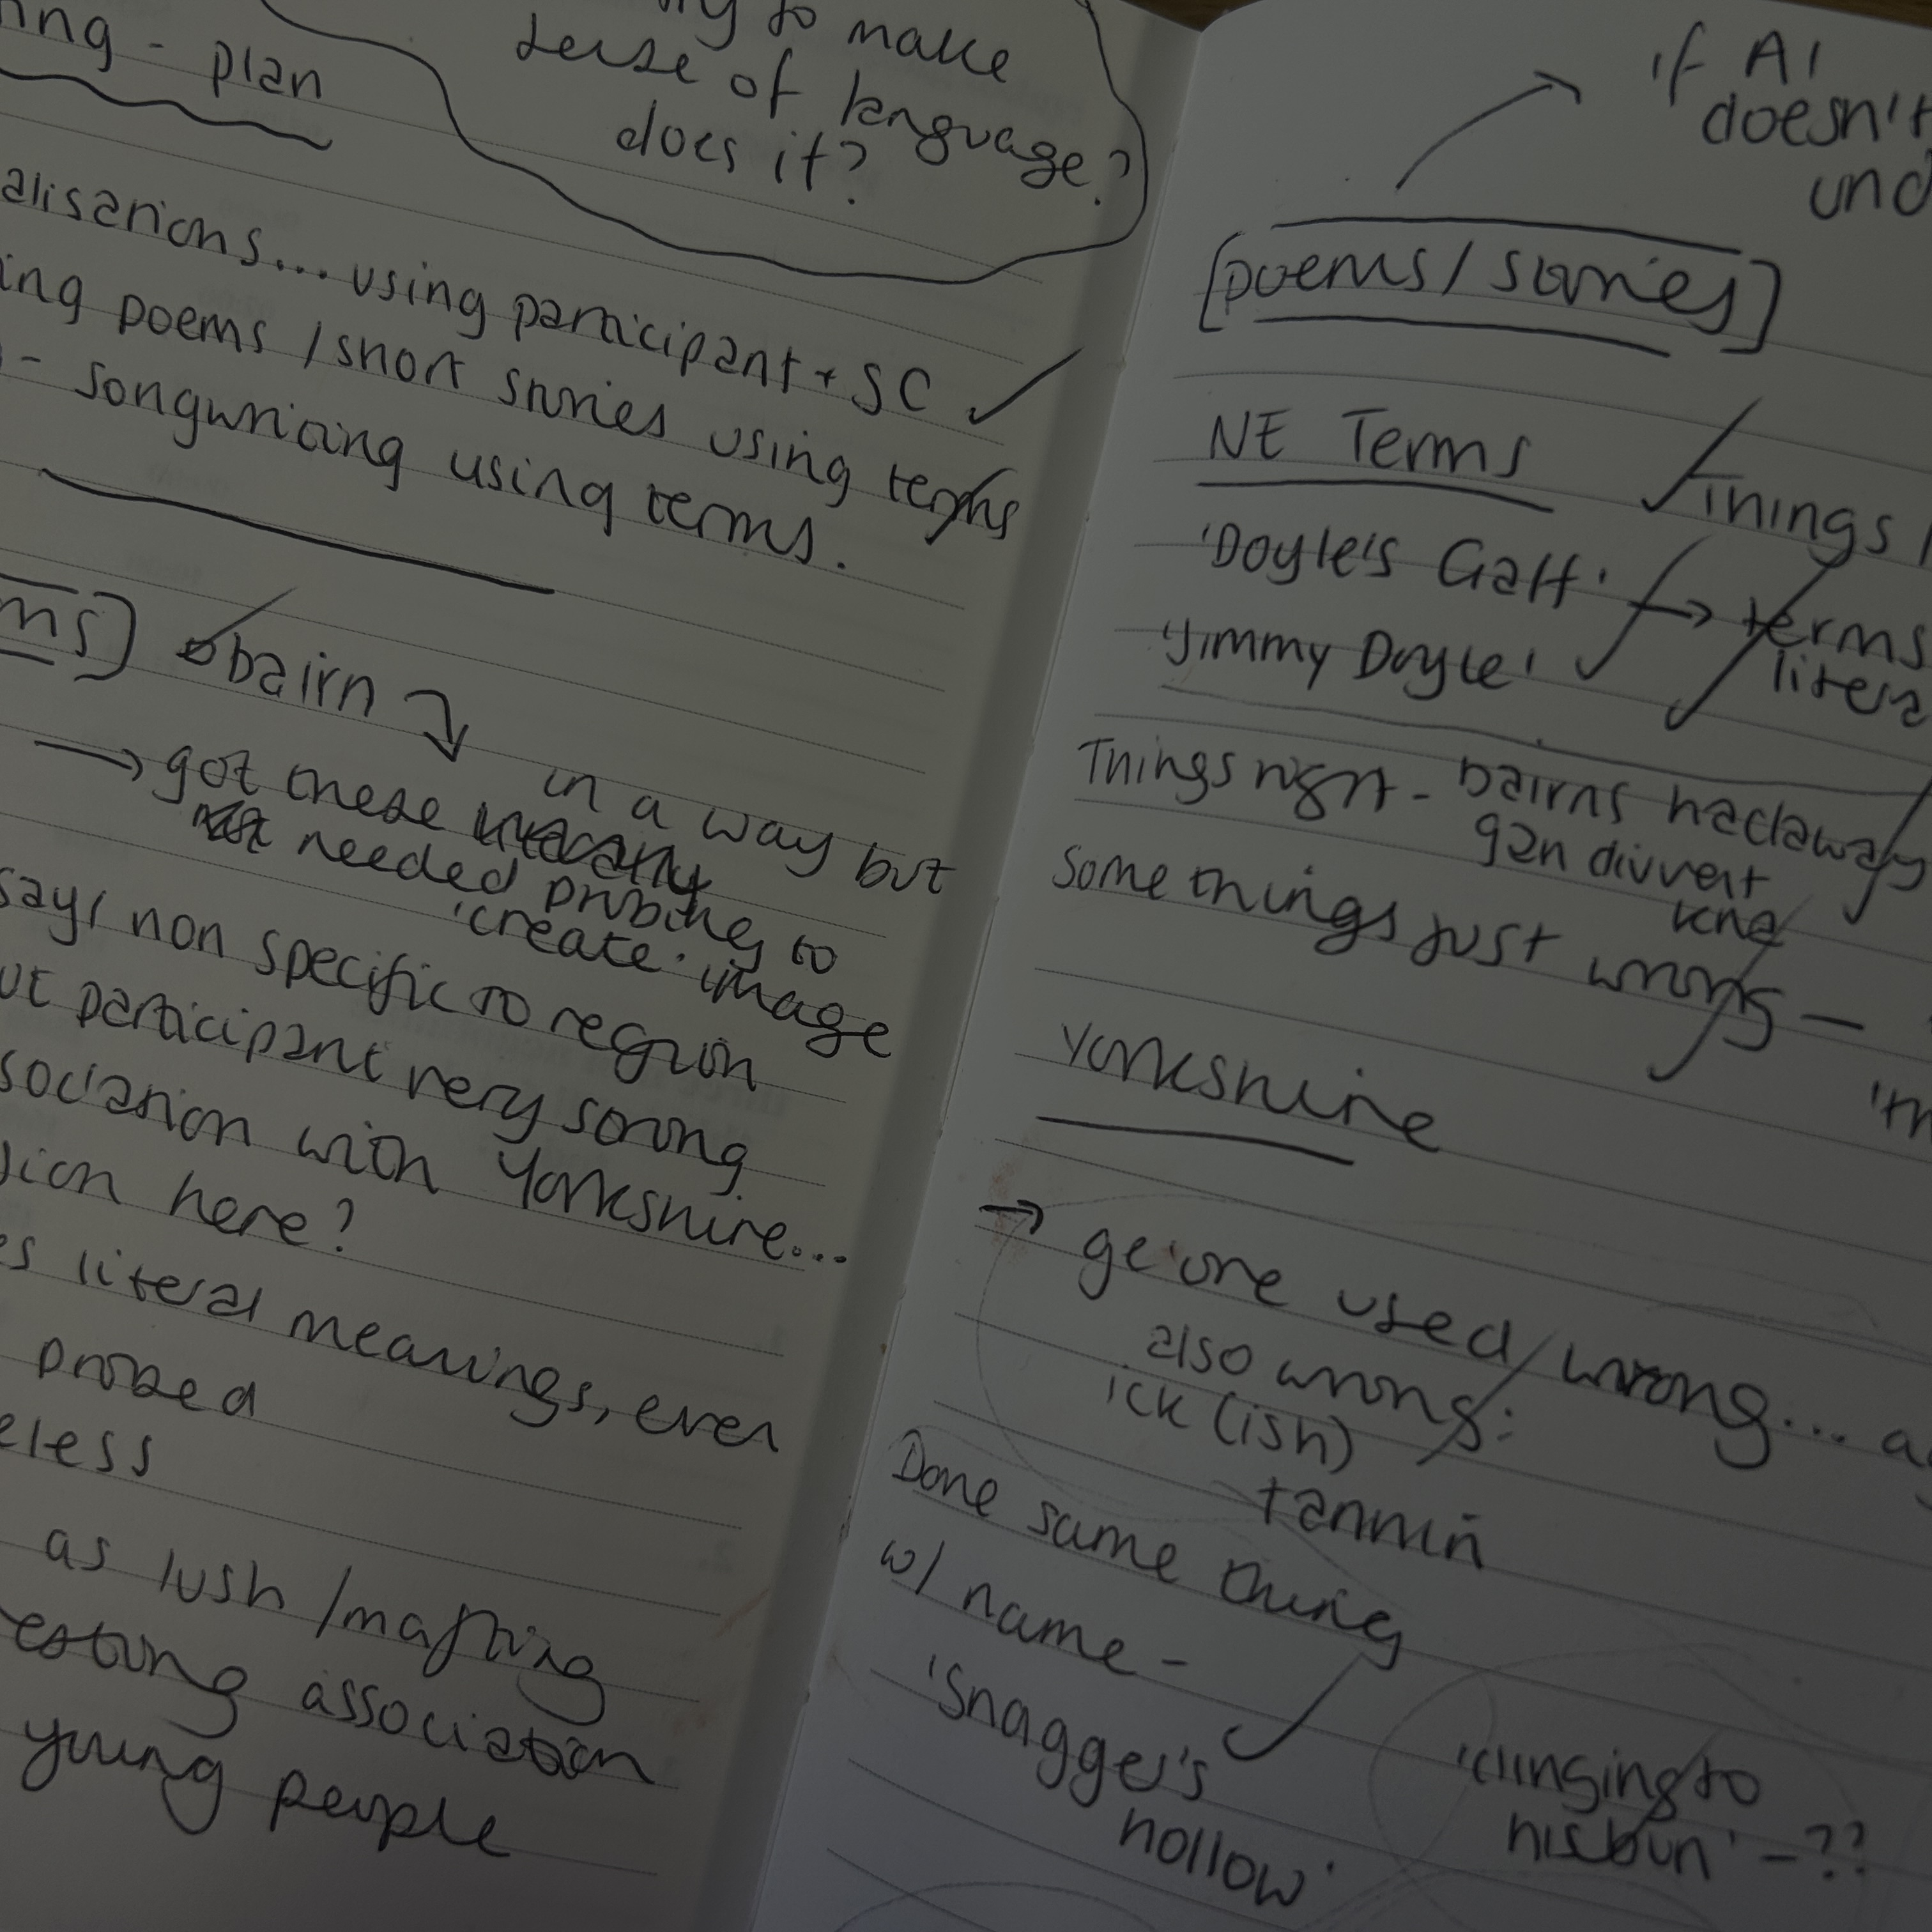 ing - plan
to make
sense of language?
does it?
alisations... using participant + SC ✓
ing poems / short stories using terms
- songwriting using terms.
ms] bairn
→ got these in a way but
needed probing to
'create' image
say/ non specific to region
ut participant very strong
sociation with Yorkshire...
sion here?
es literal meanings, even
probed
eless
as lush / mafting
esting association
young people
if AI
doesn't
und
[poems / stories]
NE Terms
Things
'Doyle's Gaff' → terms
'Jimmy Doyle' litera
Things right - bairns hadaway
gan divvent
kna
Some things just wrong -
'm
Yorkshire
→ ge'ore used wrong... a
also wrong:
ick (ish)
tannin
Done same thing
w/ name -
'Snagger's
hollow'
'clinging to
his bun' - ??